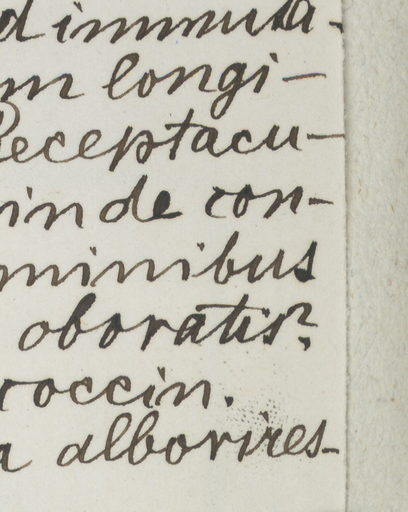 d immuta-
m longi-
Receptacu-
in de con-
minibus
oboratis?
coccin.
a alborires-